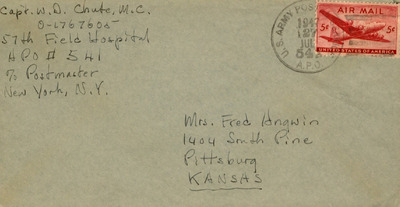 Capt. W. D. Chute, M.C.
O-1767605
57th Field Hospital
APO # 541
% Postmaster
New York, N.Y.
U.S. ARMY POSTAL
1947
127
JUL
A.P.O.
AIR MAIL
5¢ 5¢
UNITED STATES OF AMERICA
Mrs. Fred Angwin
1404 South Pine
Pittsburg
KANSAS